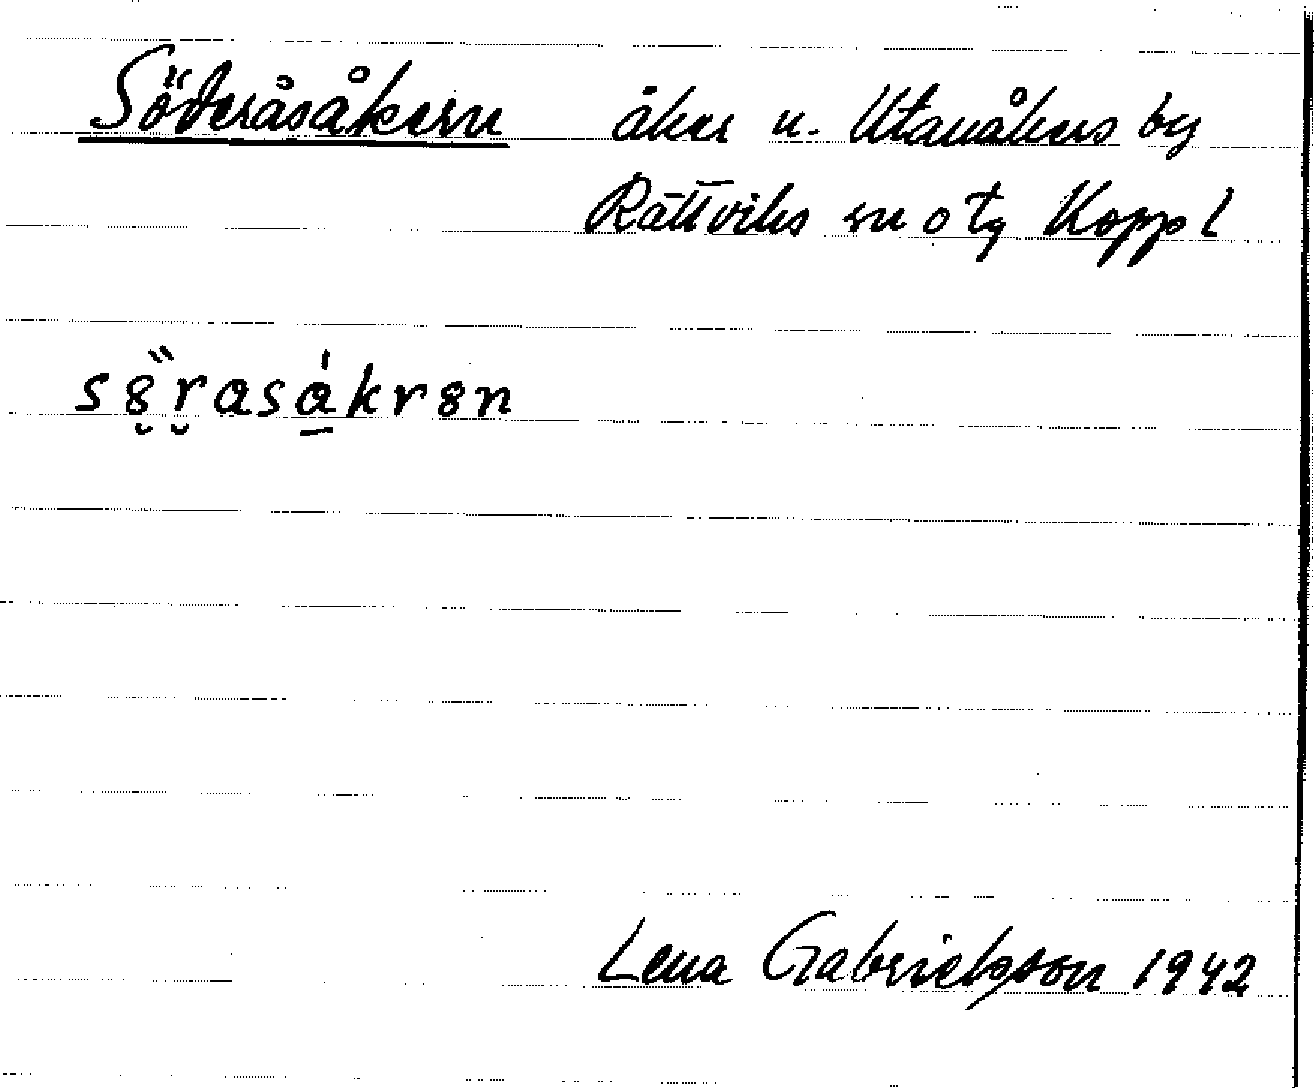 Söderåsåkern åker n. Utanåkers by
Rättviks sn o tg Kopp l
s8̮̋r̮asá̱kr8n
Lena Gabrielsson 1942